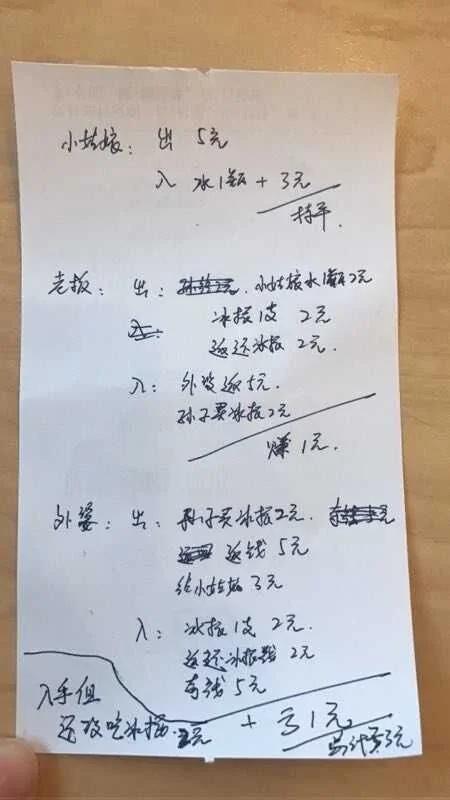 小姑娘：出 5元
入 水1瓶 + 3元
持平.
老板：出： 小姑娘水1瓶2元
入：
冰棍1支 2元
返还冰棍 2元.
入：外婆返5元.
孙子买冰棍2元
赚1元.
外婆：出：孙子买冰棍2元.
返钱 5元
给小姑娘 3元
入：冰棍1支 2元.
返还冰棍钱 2元
有钱 5元
入手但
还没吃冰棍.2元
+ 亏1元
共计亏3元